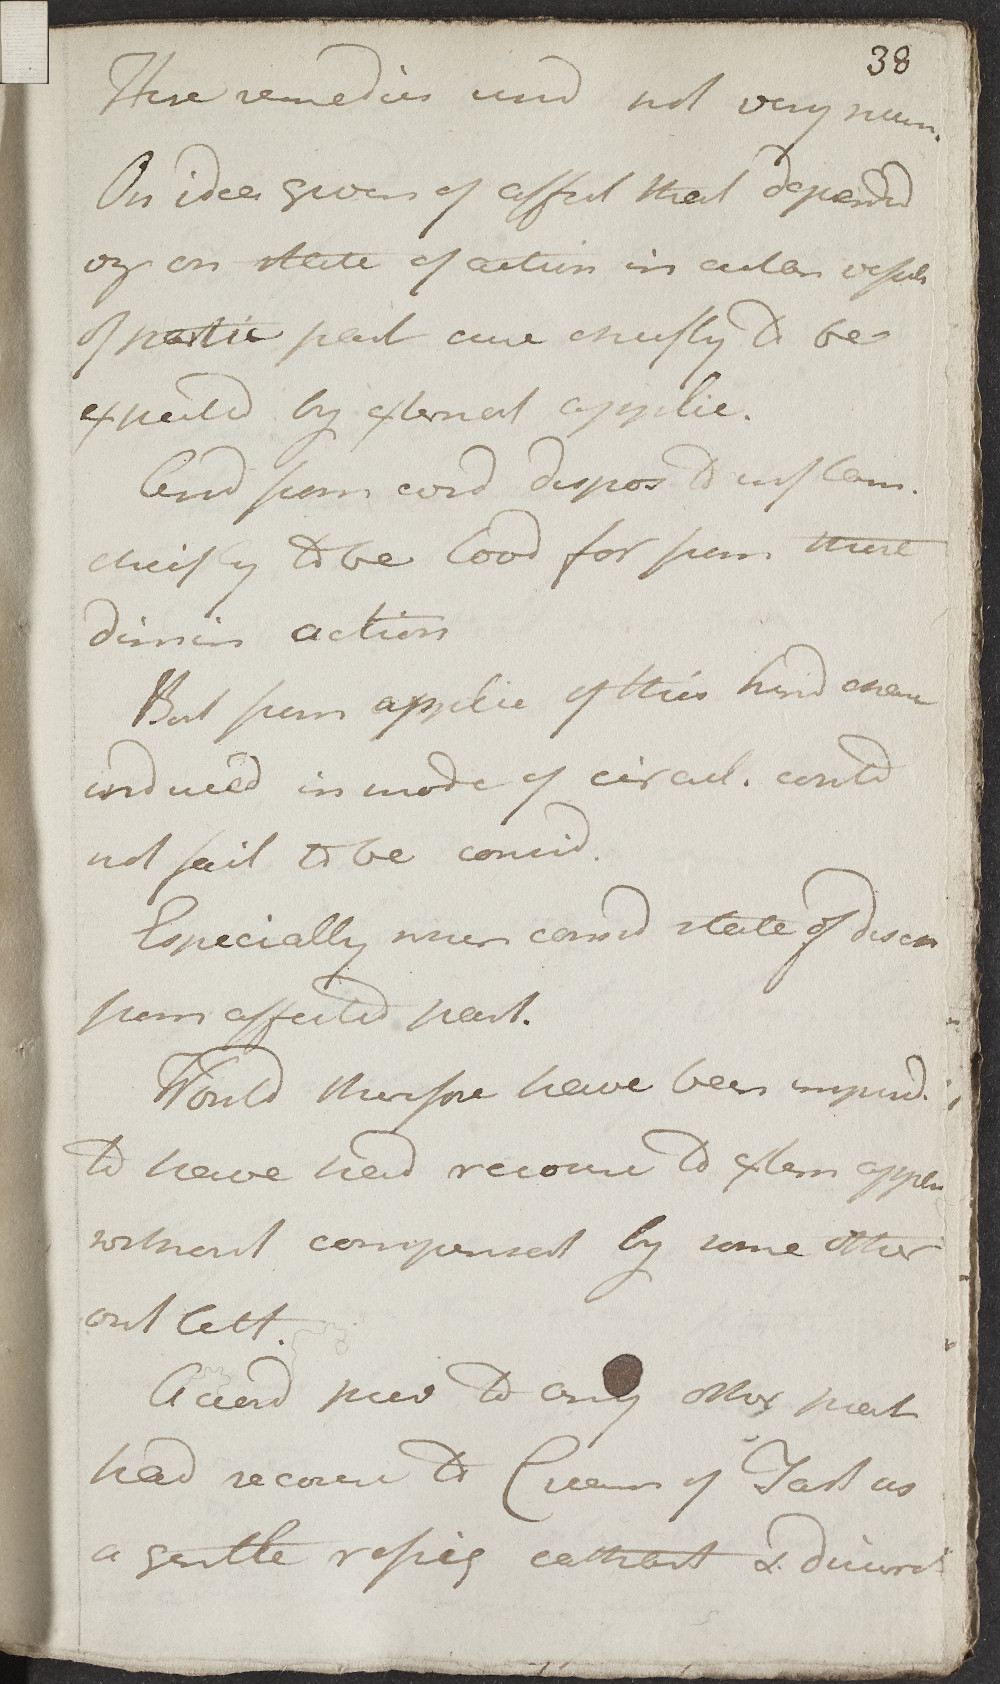 38
Here remedies used not very num.
On idea given of affect that depend
upon state of action in cutan vessels
of partic part cure chiefly to be
expected by external applic.
And from cord dispos to inflam.
chiefly to be lood for from there
dimin action
But from applic of this kind chan
induced in mode of circul. could
not fail to be consid.
Especially when consid state of disch
from affected part.
Would therefore have been imprud.
to have had recourse to extern applic
without compensat by some other
outlett.
Accord prev to any other part
had recourse to Cream of Tart as
a gentle refrig cathart & diuret